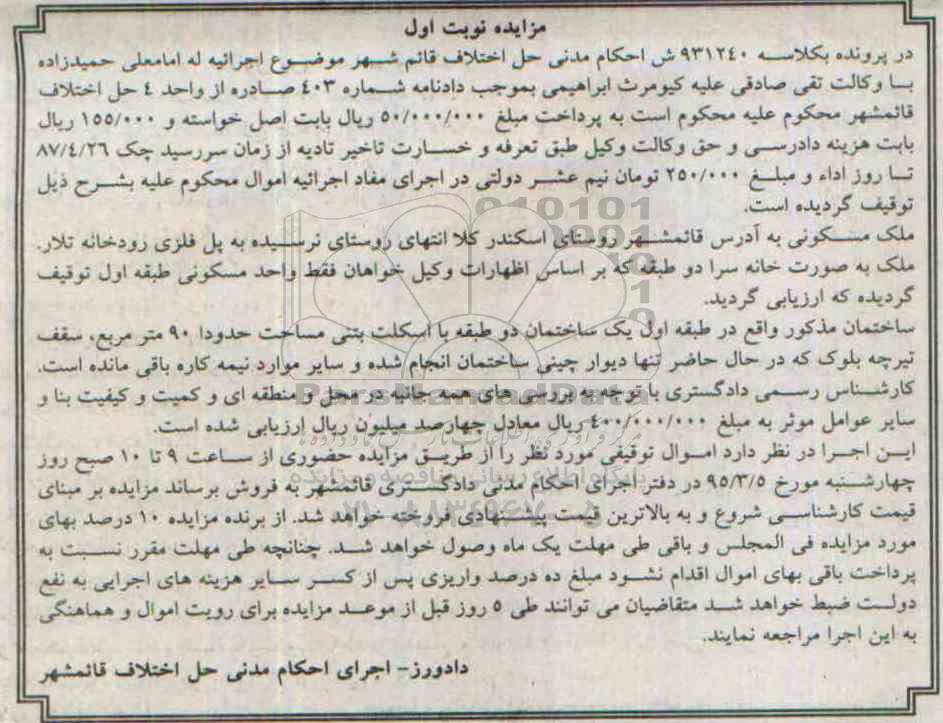 مزایده نوبت اول
در پرونده بکلاسه ۹۳۱۲۴۰ ش احکام مدنی حل اختلاف قائم شهر موضوع اجرائیه له امامعلی حمیدزاده
با وکالت تقی صادقی علیه کیومرث ابراهیمی بموجب دادنامه شماره ۴۰۳ صادره از واحد ٤ حل اختلاف
قائمشهر محکوم علیه محکوم است به پرداخت مبلغ ۵۰/۰۰۰/۰۰۰ ریال بابت اصل خواسته و ۱۵۵/۰۰۰ ریال
بابت هزینه دادرسی و حق وکالت وکیل طبق تعرفه و خسارت تاخیر تادیه از زمان سررسید چک ۸۷/٤/۲٦
تا روز اداء و مبلغ ۲۵۰/۰۰۰ تومان نیم عشر دولتی در اجرای مفاد اجرائیه اموال محکوم علیه بشرح ذیل
توقیف گردیده است.
ملک مسکونی به آدرس قائمشهر روستای اسکندر کلا انتهای روستای نرسیده به پل فلزی رودخانه تلار.
ملک به صورت خانه سرا دو طبقه که بر اساس اظهارات وکیل خواهان فقط واحد مسکونی طبقه اول توقیف
گردیده که ارزیابی گردید.
ساختمان مذکور واقع در طبقه اول یک ساختمان دو طبقه با اسکلت بتنی مساحت حدودا ۹۰ متر مربع، سقف
تیرچه بلوک که در حال حاضر تنها دیوار چینی ساختمان انجام شده و سایر موارد نیمه کاره باقی مانده است.
کارشناس رسمی دادگستری با توجه به بررسی های همه جانبه در محل و منطقه ای و کمیت و کیفیت بنا و
سایر عوامل موثر به مبلغ ٤۰۰/۰۰۰/۰۰۰ ریال معادل چهارصد میلیون ریال ارزیابی شده است.
این اجرا در نظر دارد اموال توقیفی مورد نظر را از طریق مزایده حضوری از ساعت ۹ تا ۱۰ صبح روز
چهارشنبه مورخ ۹۵/۳/۵ در دفتر اجرای احکام مدنی دادگستری قائمشهر به فروش برساند مزایده بر مبنای
قیمت کارشناسی شروع و به بالاترین قیمت پیشنهادی فروخته خواهد شد. از برنده مزایده ۱۰ درصد بهای
مورد مزایده فی المجلس و باقی طی مهلت یک ماه وصول خواهد شد. چنانچه طی مهلت مقرر نسبت به
پرداخت باقی بهای اموال اقدام نشود مبلغ ده درصد واریزی پس از کسر سایر هزینه های اجرایی به نفع
دولت ضبط خواهد شد متقاضیان می توانند طی ۵ روز قبل از موعد مزایده برای رویت اموال و هماهنگی
به این اجرا مراجعه نمایند.
دادورز- اجرای احکام مدنی حل اختلاف قائمشهر